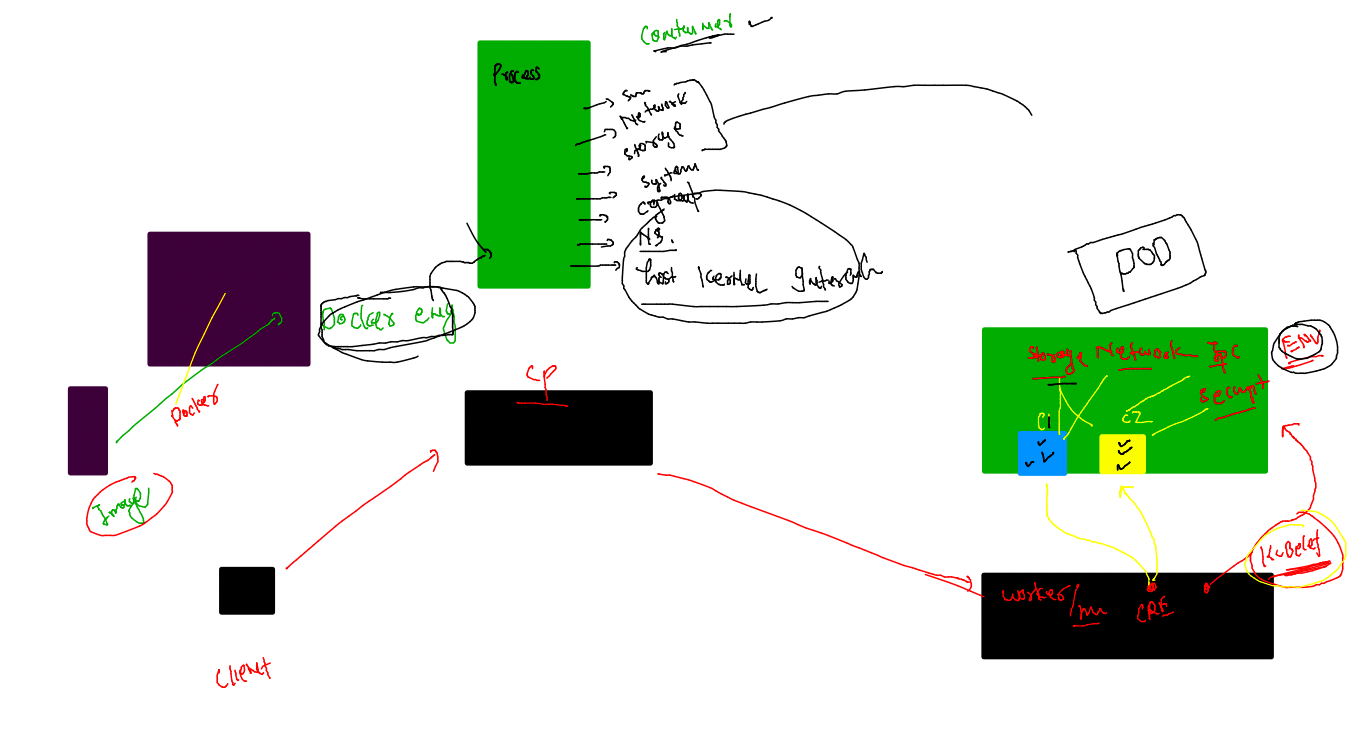 Container
Process
Network
storage
system
cgroup
NS.
host kernel
Docker eng
Docker
Image
CP
client
POD
storage Network Ipc
ENV
C1
C2
KuBelet
worker/
CRE